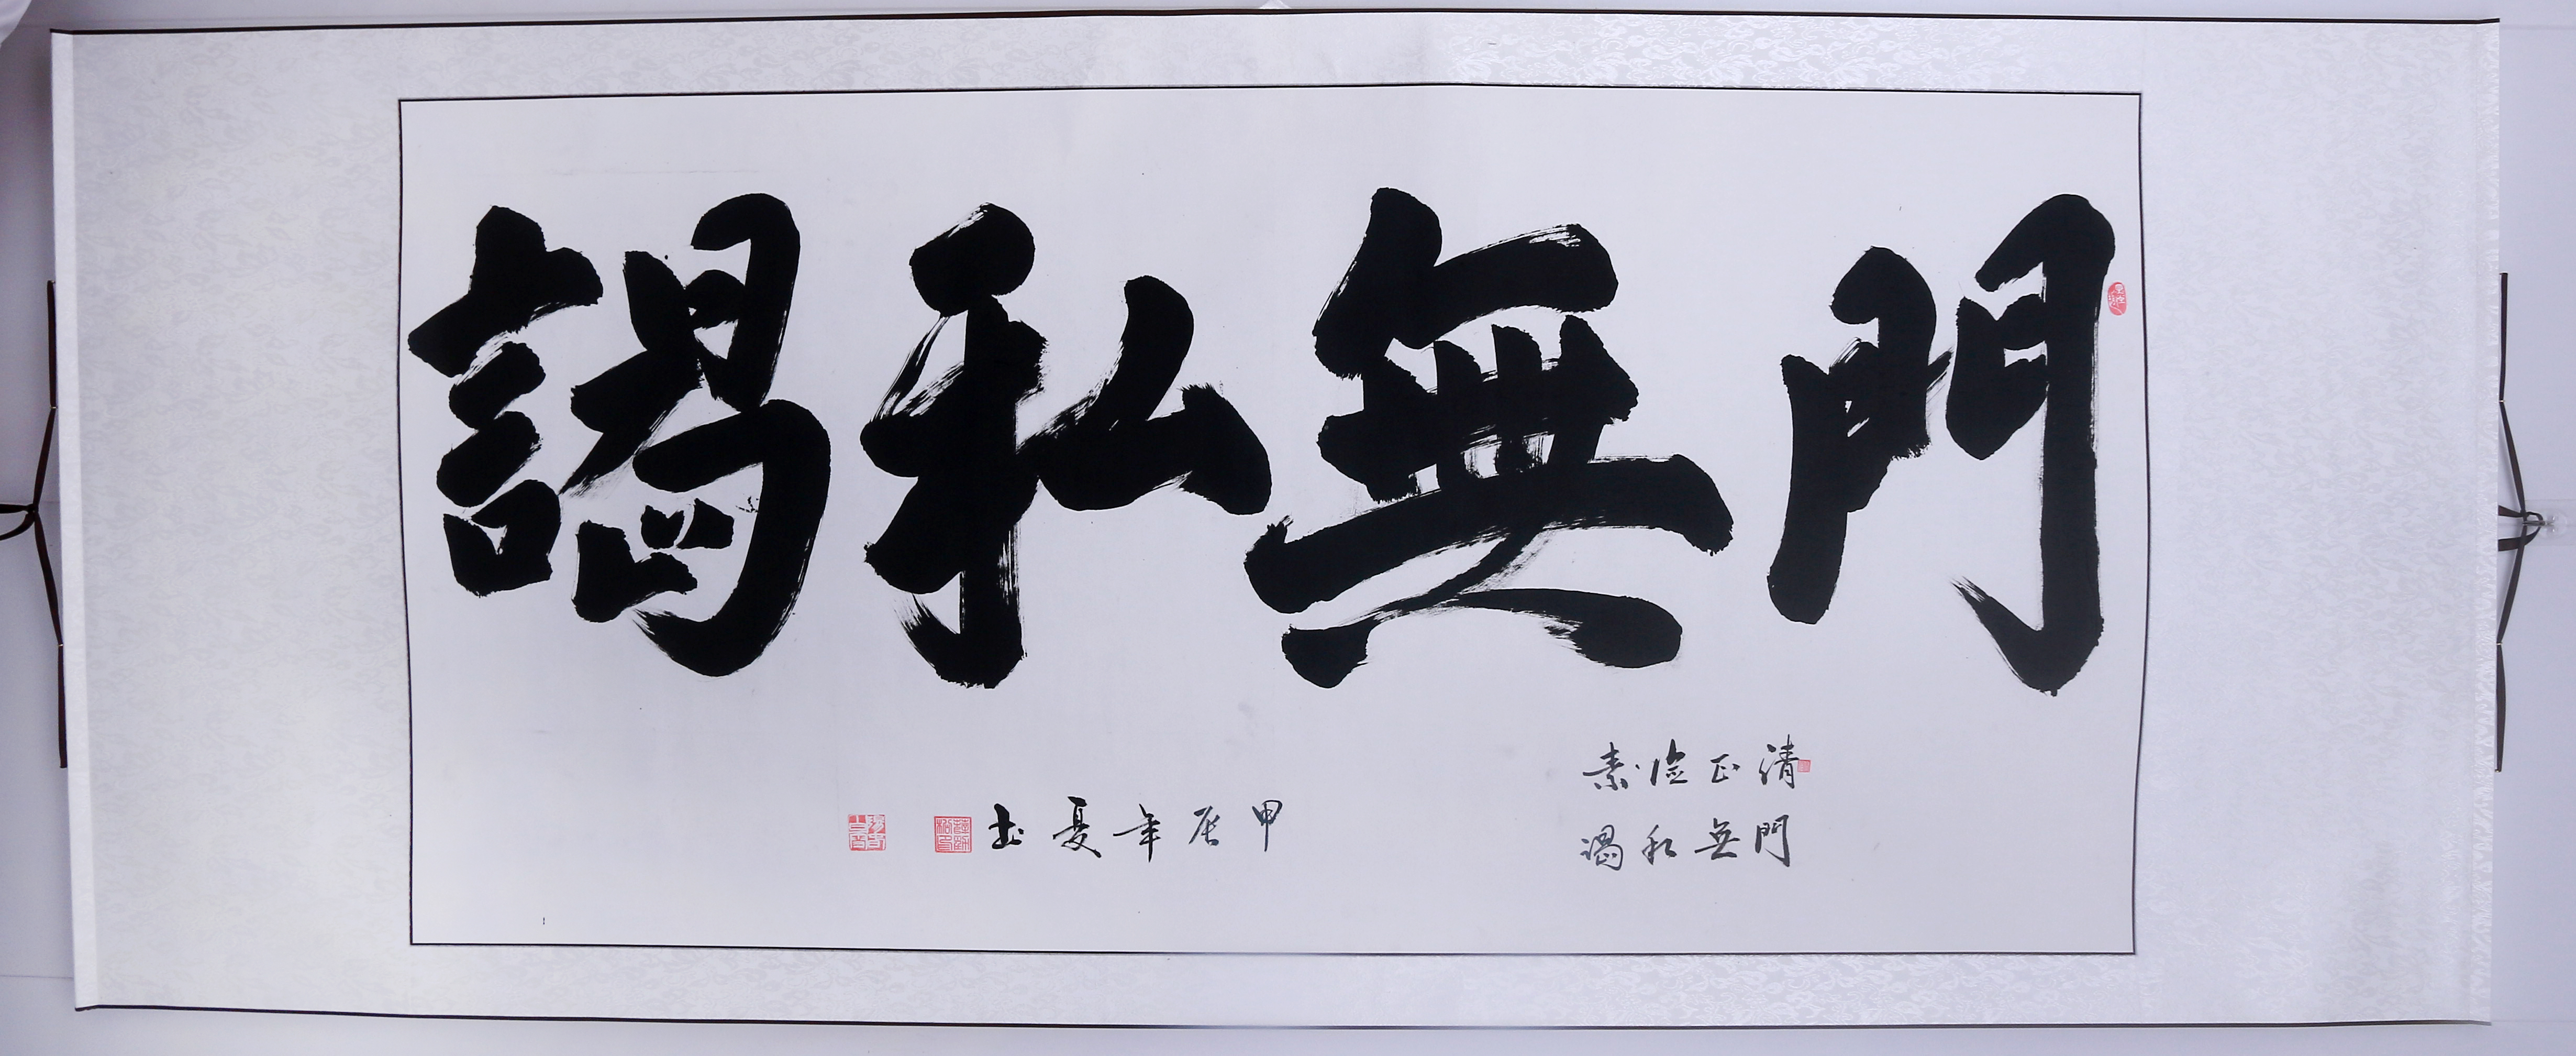 門無私謁
清正儉素
門無私謁
甲辰年夏書